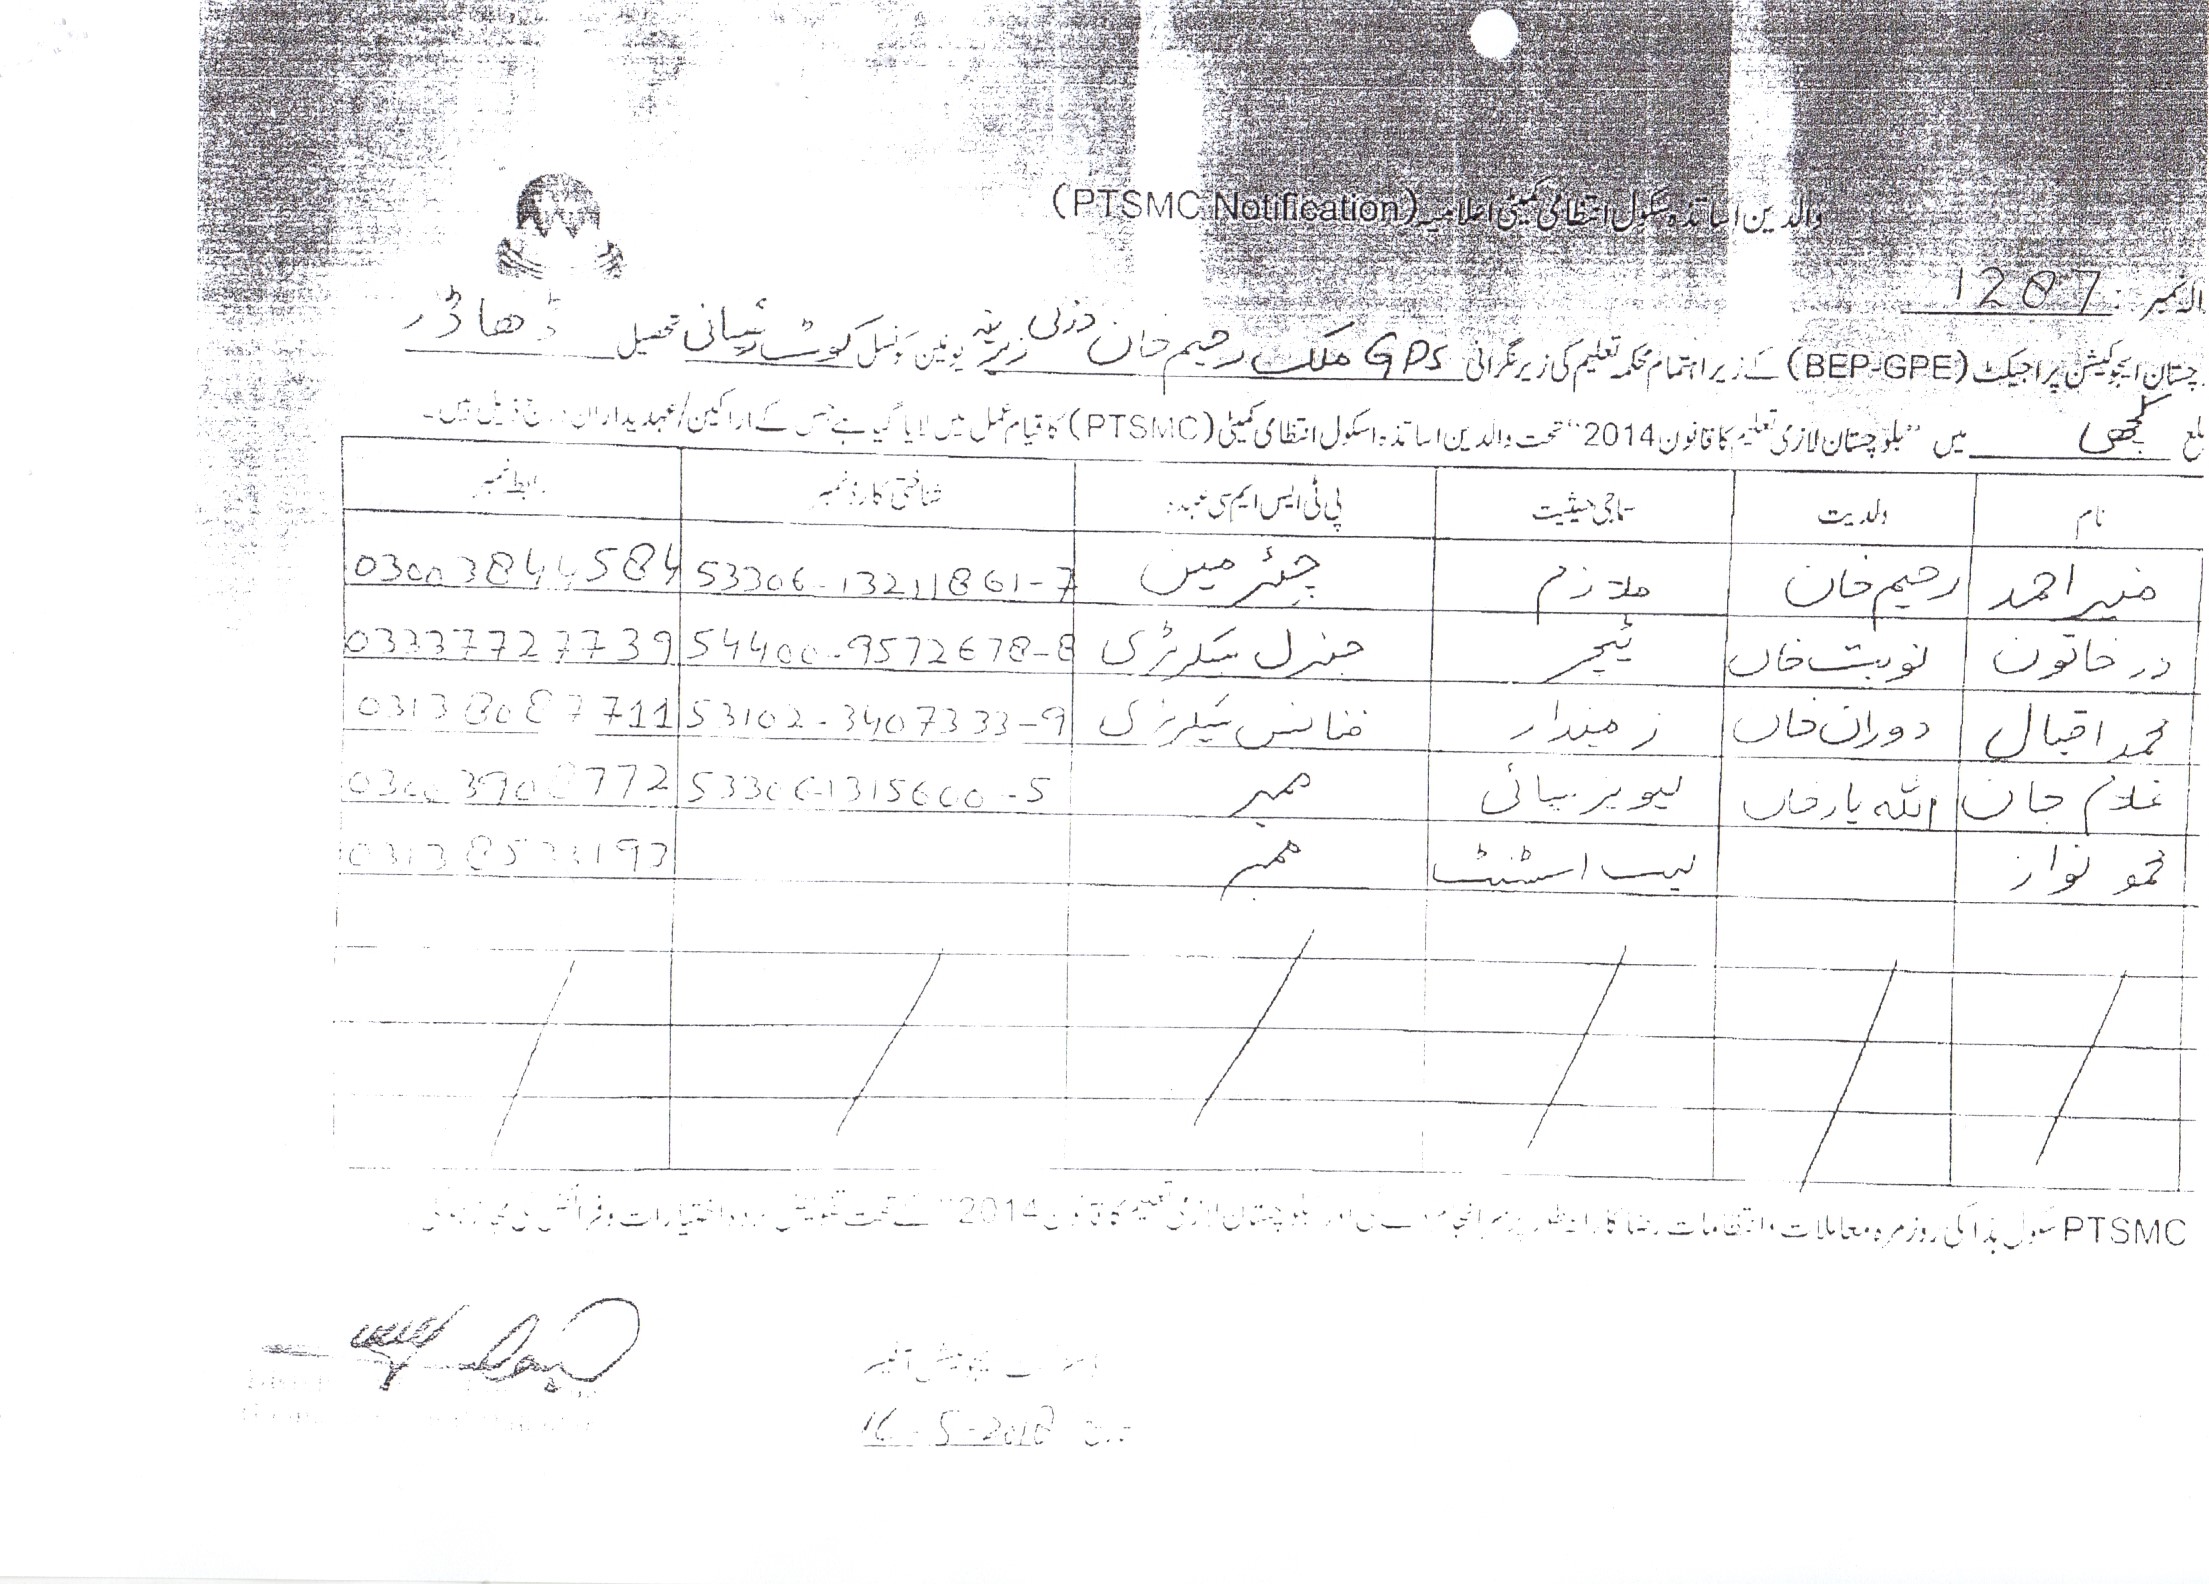 والدین اساتذہ سکول انتظامی کمیٹی اعلامیہ (PTSMC Notification)
نمبر: 1287
چستان ایجوکیشن پراجیکٹ (BEP-GPE) کے زیر اہتمام محکمہ تعلیم کی زیر نگرانی GPS ملک رحیم خان یونین کونسل کوٹ رئیسانی تحصیل ڈھاڈر
کچھی میں "بلوچستان لازمی تعلیم کا قانون 2014" تحت والدین اساتذہ اسکول انتظامی کمیٹی (PTSMC) کا قیام عمل میں لایا گیا ہے جس کے اراکین/عہدیداران درج ذیل ہیں۔
نام ولدیت سماجی حیثیت پی ٹی ایس ایم سی عہدہ شناختی کارڈ نمبر رابطہ نمبر
منیر احمد رحیم خان ملازم چئرمین 53306-13211861-7 03003844584
در خاتون نوبت خان ٹیچر جنرل سیکرٹری 54400-9572678-8 03337727739
محمد اقبال دوران خان زمیندار فنانس سیکرٹری 53102-3407333-9 03138087711
غلام جان اللہ یار خان لیویز سپائی ممبر 53306-1315600-5 03003908772
نواز لیب اسسٹنٹ ممبر
PTSMC سکول ہذا کی روزمرہ معاملات و انتظامات بلوچستان لازمی تعلیم کا قانون 2014 کے تحت تفویض کردہ اختیارات و فرائض
16-5-2018